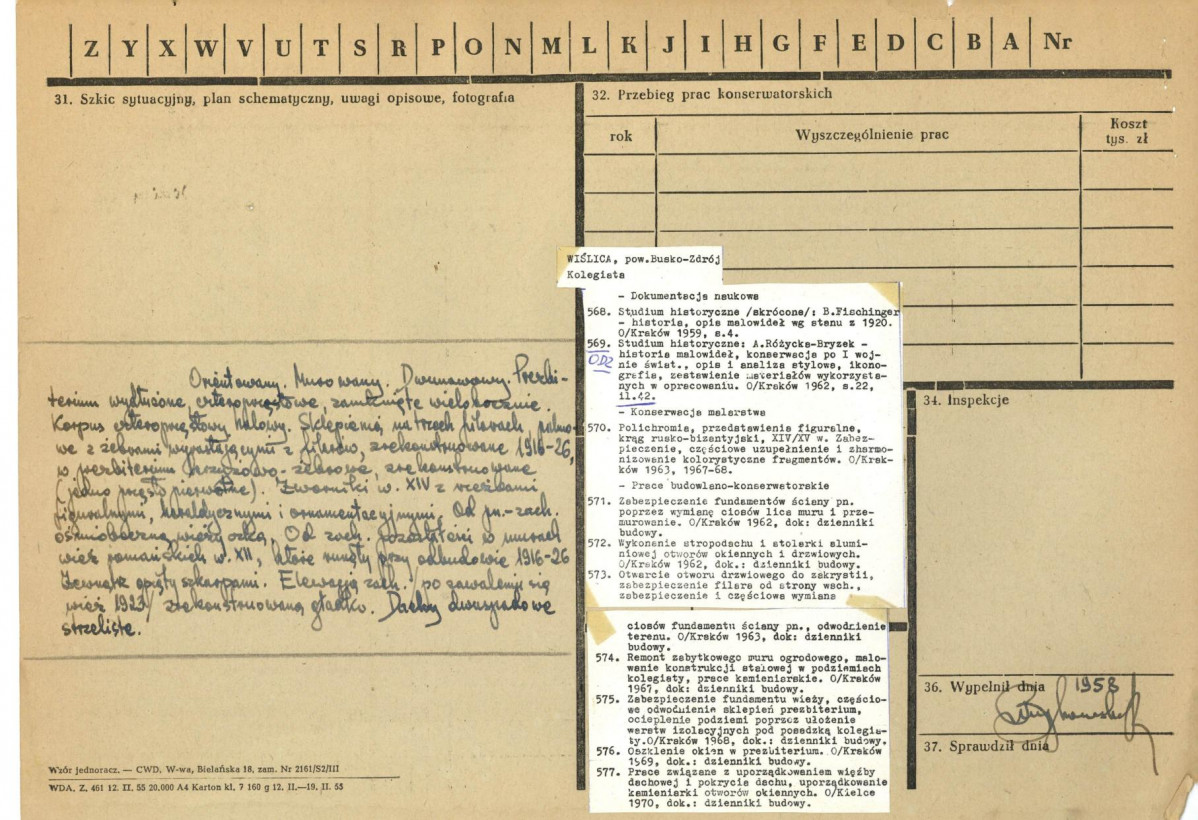 Z Y X W V U T S R P O N M L K J I H G F E D C B A Nr
31. Szkic sytuacyjny, plan schematyczny, uwagi opisowe, fotografia
Orientowany. Murowany. Dwunawowy. Prezbi-
terium wydłużone, czteroprzęsłowe, zamknięte wielobocznie.
Korpus czteroprzęsłowy halowy. Sklepienia na trzech filarach, palmo-
we z żebrami wyrastającymi z filarów, zrekonstruowane 1916-26,
w prezbiterium krzyżowo-żebrowe, zrekonstruowane
(jedno przęsło pierwotne). Zworniki w. XIV z rzeźbami
figuralnymi, heraldycznymi i ornamentacyjnymi. Od pn.-zach.
ośmioboczna wieżyczka. Od zach. pozostałości w murach
wież romańskich w. XII, które runęły przy odbudowie 1916-26
Zewnątrz opięty szkarpami. Elewacja zach. po zawaleniu się
wież 1923 zrekonstruowana gładko. Dachy dwuspadowe
strzeliste.
Wzór jednoracz. — CWD, W-wa, Bielańska 18, zam. Nr 2161/S2/III
WDA. Z. 461 12. II. 55 20.000 A4 Karton kl. 7 160 g 12. II.—19. II. 55
32. Przebieg prac konserwatorskich
rok
Wyszczególnienie prac
Koszt
tys. zł
WIŚLICA, pow.Busko-Zdrój
Kolegiata
- Dokumentacja naukowa
568. Studium historyczne /skrócone/: B.Fischinger
- historia, opis malowideł wg stanu z 1920.
O/Kraków 1959, s.4.
569. Studium historyczne: A.Różycka-Bryzek -
historia malowideł, konserwacja po I woj-
nie świat., opis i analiza stylowa, ikono-
grafia, zestawienie materiałów wykorzysta-
nych w opracowaniu. O/Kraków 1962, s.22,
il.42.
- Konserwacja malarstwa
570. Polichromia, przedstawienia figuralne,
krąg rusko-bizantyjski, XIV/XV w. Zabez-
pieczenie, częściowe uzupełnienie i zharmo-
nizowanie kolorystyczne fragmentów. O/Kra-
ków 1963, 1967-68.
- Prace budowlano-konserwatorskie
571. Zabezpieczenie fundamentów ściany pn.
poprzez wymianę ciosów lica muru i prze-
murowanie. O/Kraków 1962, dok: dzienniki
budowy.
572. Wykonanie stropodachu i stolarki alumi-
niowej otworów okiennych i drzwiowych.
O/Kraków 1962, dok.: dzienniki budowy.
573. Otwarcie otworu drzwiowego do zakrystii,
zabezpieczenie filara od strony wsch.,
zabezpieczenie i częściowa wymiana
ciosów fundamentu ściany pn., odwodnienie
terenu. O/Kraków 1963, dok: dzienniki
budowy.
574. Remont zabytkowego muru ogrodowego, malo-
wanie konstrukcji stalowej w podziemiach
kolegiaty, prace kamieniarskie. O/Kraków
1967, dok: dzienniki budowy.
575. Zabezpieczenie fundamentu wieży, częścio-
we odwodnienie sklepień prezbiterium,
ocieplenie podziemi poprzez ułożenie
warstw izolacyjnych pod posadzką kolegia-
ty.O/Kraków 1968, dok.: dzienniki budowy.
576. Oszklenie okien w prezbiterium. O/Kraków
1969, dok.: dzienniki budowy.
577. Prace związane z uporządkowaniem więźby
dachowej i pokrycia dachu, uporządkowanie
kamieniarki otworów okiennych. O/Kielce
1970, dok.: dzienniki budowy.
34. Inspekcje
36. Wypełnił dnia 1958
37. Sprawdził dnia